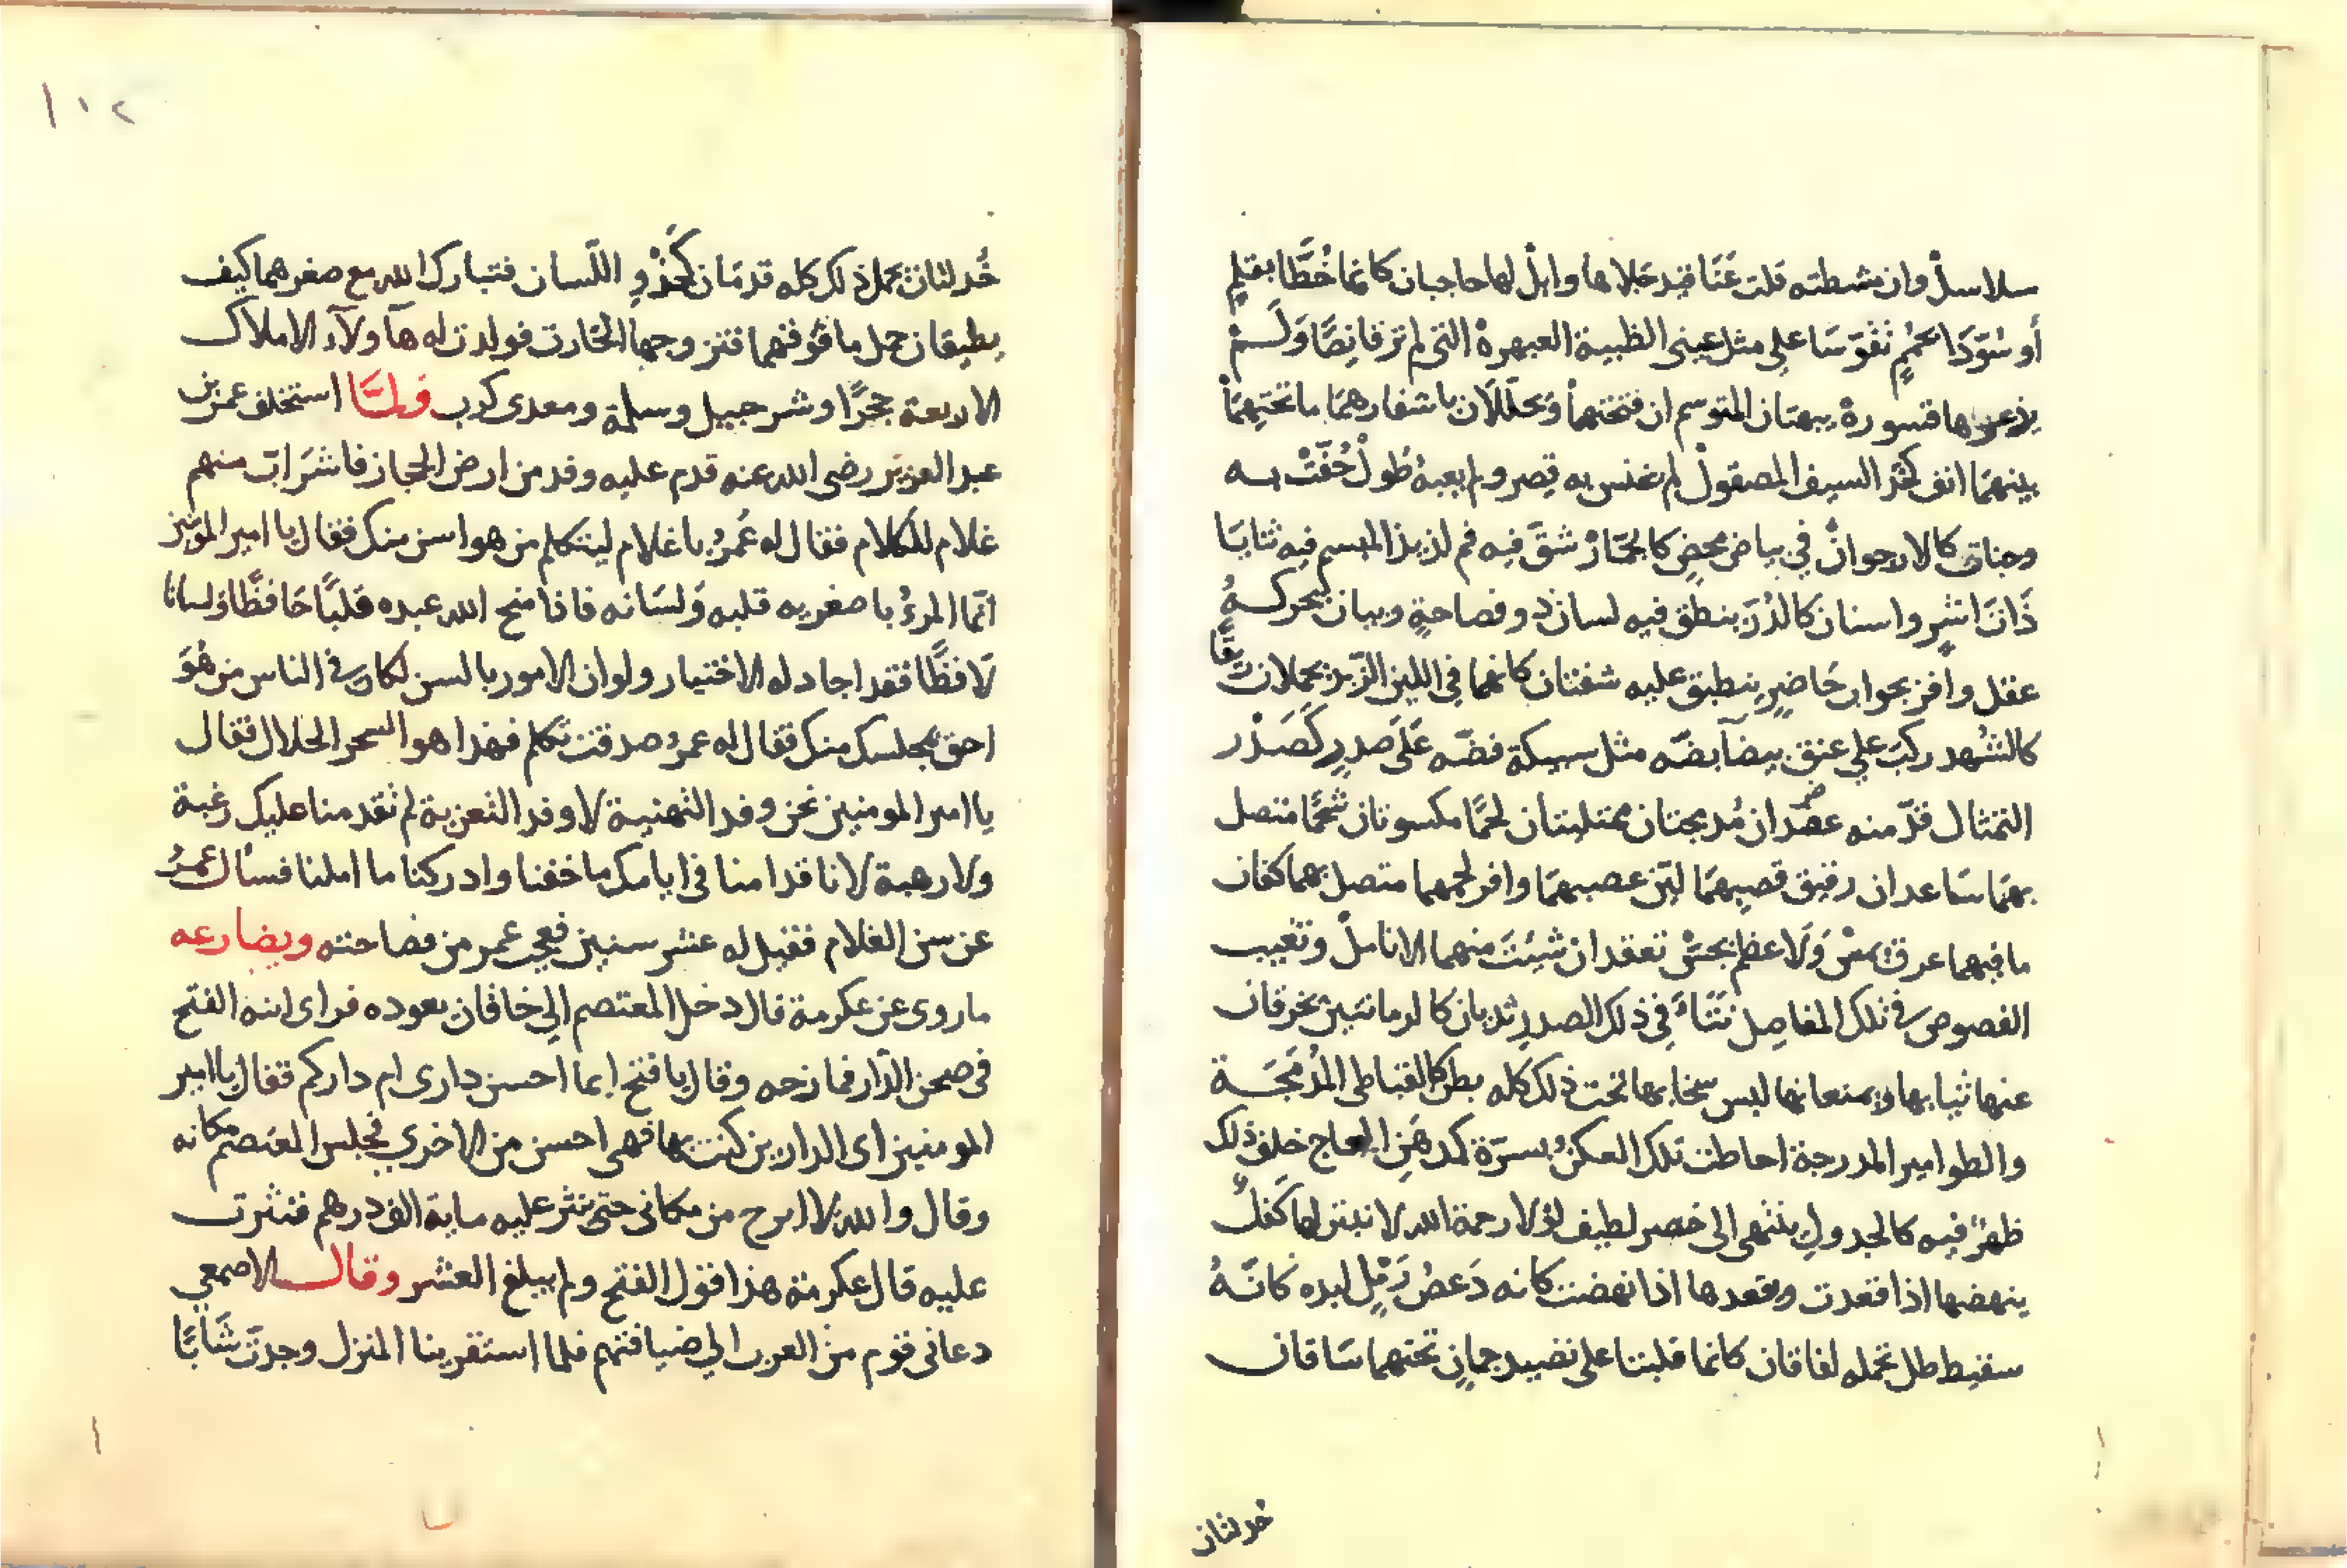 سلاسل وان مشطته قلت عناقيد جلاها وابل لها حاجبان كانما خُطَّا بقلم
أو سُوّدا بحُمم تقوّسا على مثل عينى الظبية العبهرة التى لم تر قانصًا وَلَم
يذعرها قسورة يبهتان المتوسم ان فتحتهما وَيحلّلان باشفارهما ما تحتهما
بينهما انف كحد السيف المصقول لم يخنس به قصر ولم يعبهُ طُول حُفّتْ به
وجنات كالارجوان في بياض محض كالجمّار شقّ فيه فم لذيذ المبسم فيه ثنايا
ذات اشر واسنان كالدرّ ينطق فيه لسان ذو فصاحةٍ وبيان يحركهُ
عقل وافر بجواب حَاضرٍ ينطبق عليه شفتان كانهما في اللين الزبد يحملان ريقا
كالشهد ركب علي عنق بيضا بضّه مثل سبيكة فضّه عَلَى صدرٍ كَصَدْر
التمثال قدّ منه عضدان مُدبجتان ممتليتان لحمًا مكسوتان شحمًا متصل
بهمَا سَاعدان رقيق قصبهمَا ليّن عصبهمَا وافر لحمهما متصل بهما كفان
ما فيهما عرق يمسّ وَلَا عظم يجسّ تعقد ان شيئت منهما الانامل وتغيب
الفصوص في تلك المفاصِل نتَاءَ في ذلك الصدر ثديان كالرمانتين يخرقان
عنها ثيابها ويمنعانها لبس سخابها تحت ذلك كله بطن كالقباطى المُدْمَجَة
والطوامير المدرجة احاطت تلك العكن بسرّة كمدهَن العاج خلف ذلك
ظهرٌ فيه كالجدول ينتهى الى خصر لطيف لولا رحمة الله لانبتر لها كَفلٌ
ينهضها اذا قعدت ويقعدها اذا نهضت كانه دَعصُ رَمْل لبده كانّهُ
سقيط طل تحمله لفافان كانما قلبتا على نضيد جمانٍ تحتهما سَاقان
خدلتان
١٠٢
خَدلتان تحمل ذلك كله قدمَان كَحَذْوِ اللّسان فتبارك الله مع صغرهما كيف
يطيقان حمل ما فوقهما فتزوجها الحارث فولدت له هآولآء الاملاك
الاربعة حجرًا وشرحبيل وسلمة ومعدى كرب ولمّا استخلف عمر بن
عبد العزيز رضى الله عنه قدم عليه وفد من ارض الحجاز فاشرَابّ منهم
غلام للكلام فقال له عُمرُ يا غلام ليتكلم من هو اسن منك فقال يا امير المومنين
انّما المرءُ باصغريه قلبه وَلسَانه فاذا منح الله عبده قلبًا حَافظًا ولسانا
لَافظًا فقد اجاد له الاختيار ولو ان الامور بالسن لكان في الناس من هُوَ
احق بمجلسك منك فقال له عمرُ صدقت تكلم فهذا هو السحر الحلال فقال
يا امير المومنين نحن وفد التهنية لا وفد التعزية لم تقدمنا عليك رغبة
ولا رهبة لانا قد امنا في ايامك ما خفنا وادركنا ما املنا فسأل عمرُ
عن سن الغلام فقيل له عشر سنين فعجب عمر من فصاحته ويضارعه
ما روى عن عكرمة قال دخل المعتصم الي خاقان يعوده فراى ابنه الفتح
في صحن الدّار فمازحه وقال يا فتح ايما احسن دارى ام داركم فقال يا امير
المومنين اى الدارين كنت بها فهى احسن من الاخري فجلس المعتصم مكانه
وقال والله لا ابرح من مكانى حتى نثر عليه ماية الف درهم فنثرت
عليه قال عكرمة هذا قول الفتح ولم يبلغ العشر وقال الاصمعي
دعانى قوم من العرب الي ضيافتهم فلما استقر بنا المنزل وجدت شَابًا